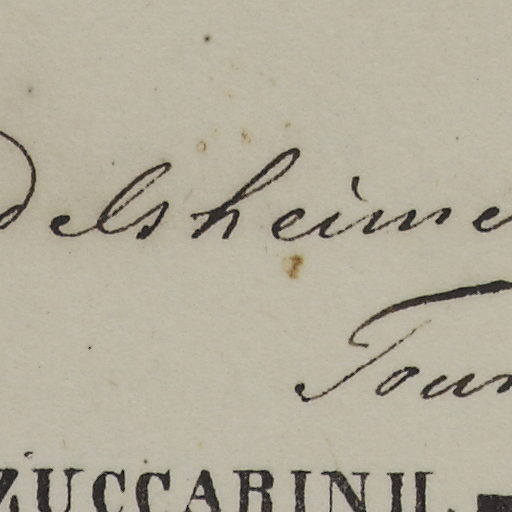 delsheime
Tour
ZUCCARINII.